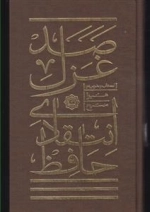 صد
غزل
انتقادی
حافظ